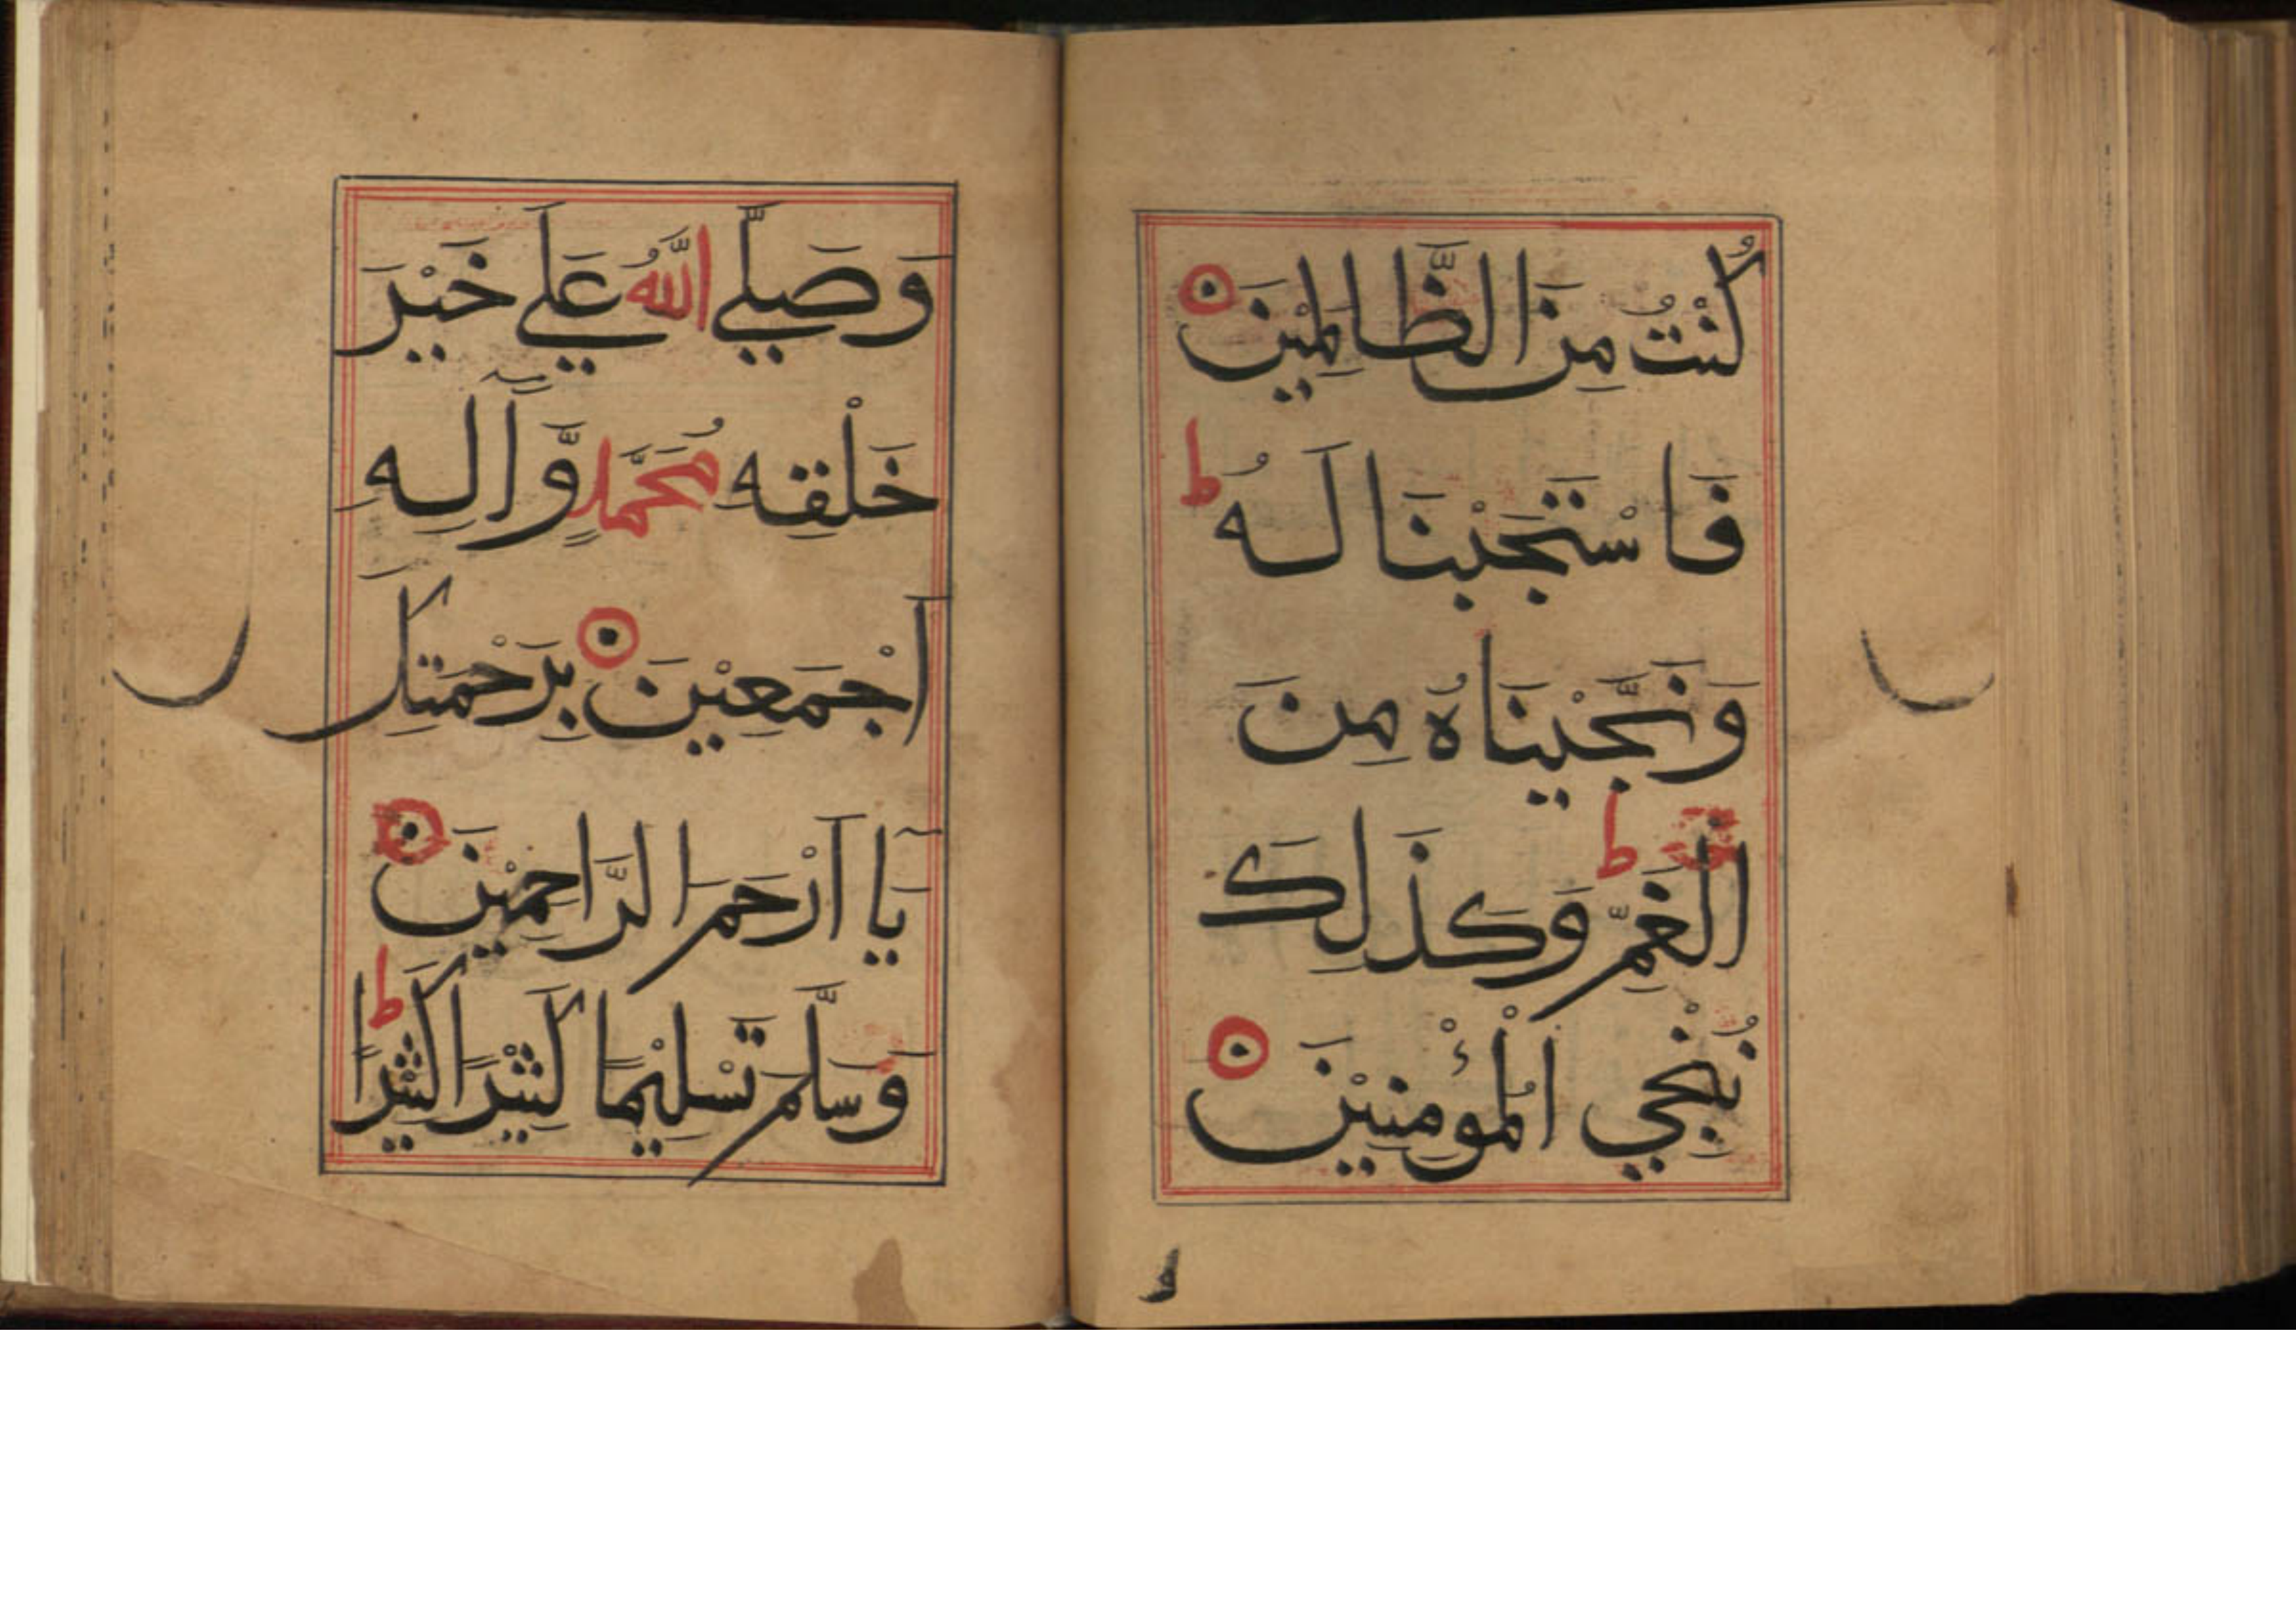 كُنْتُ مِنَ الظَّالِمِيْنَ
فَاسْتَجَبْنَا لَهُ ط
وَنَجَّيْنَاهُ مِنَ
الْغَمِّ ط وَكَذَلِكَ
نُنْجِي الْمُؤْمِنِيْنَ
و
وَصَلَّے اللَّهُ عَلَے خَيْرَ
خَلْقِهِ مُحَمَّدٍ وَّآلِهِ
اَجْمَعِيْنَ بِرَحْمَتِكَ
يَا اَرْحَمَ الرَّاحِمِيْنَ
وَسَلَّمَ تَسْلِيْمًا كَثِيْرًا كَثِيْرًا ط